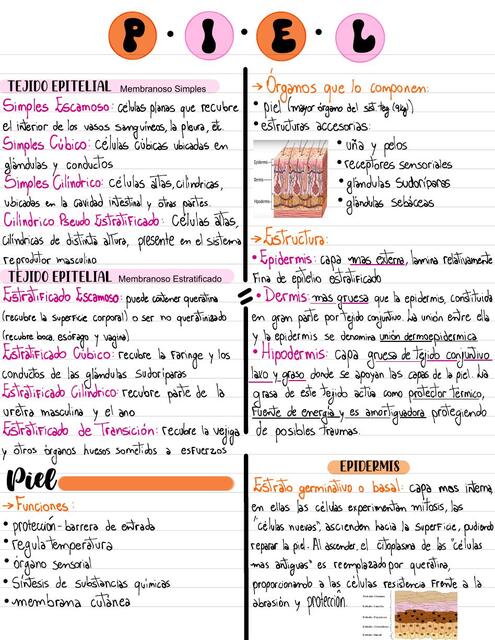 P · I · E · L
TEJIDO EPITELIAL Membranoso Simples
Simples Escamoso: células planas que recubre
el interior de los vasos sanguíneos, la pleura, etc
Simples Cúbico: Células cúbicas ubicadas en
glándulas y conductos
Simples Cilíndrico: Células altas, cilíndricas,
ubicadas en la cavidad intestinal y otras partes.
Cilíndrico Pseudo Estratificado: Células altas,
cilíndricas de distinta altura, presente en el sistema
reprodutor masculino
TEJIDO EPITELIAL Membranoso Estratificado
Estratificado Escamoso: puede contener queratina
(recubre la superficie corporal) o ser no queratinizado
(recubre boca, esófago y vagina)
Estratificado Cúbico: recubre la faringe y los
conductos de las glándulas sudoríparas
Estratificado Cilíndrico: recubre parte de la
uretra masculina y el ano
Estratificado de Transición: recubre la vejiga
y otros órganos huesos sometidos a esfuerzos
Piel
→ Funciones:
• protección - barrera de entrada
• regula temperatura
• órgano sensorial
• Síntesis de substancias químicas
• membrana cutánea
→ Órganos que lo componen:
• piel (mayor órgano del sist. teg (9kg)
• estructuras accesorias:
• uña y pelos
• receptores sensoriales
• glándulas sudoríparas
• glándulas sebáceas
Epidermis
Dermis
Hipodermis
→ Estructura:
• Epidermis: capa mas externa, lamina relativamente
fina de epitelio estratificado
• Dermis: mas gruesa que la epidermis, constituida
en gran parte por tejido conjuntivo. La unión entre ella
y la epidermis se denomina unión dermoepidermica
• Hipodermis: capa gruesa de tejido conjuntivo
laxo y graso donde se apoyan las capas de la piel. La
grasa de este tejido actúa como protector térmico,
fuente de energía y es amortiguadora protegiendo
de posibles traumas.
EPIDERMIS
Estrato germinativo o basal: capa mas interna,
en ellas las células experimentan mitosis, las
"células nuevas", ascienden hacia la superficie, pudiendo
reparar la piel. Al ascender, el citoplasma de las "células
mas antiguas" es reemplazado por queratina,
proporcionando a las células resistencia frente a la
abrasión y protección.